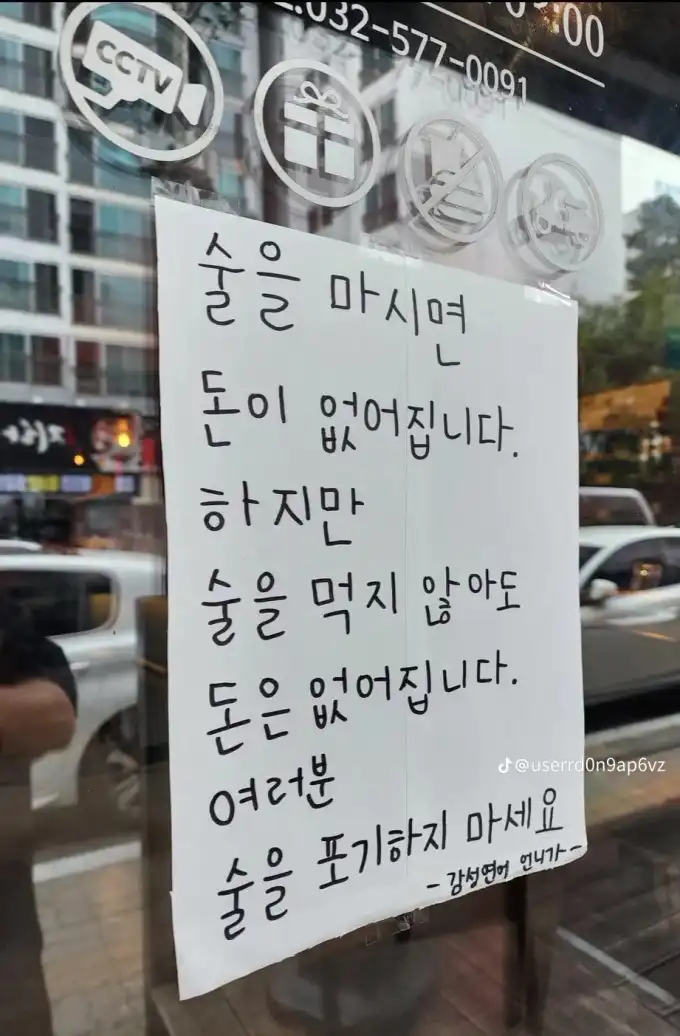 032-577-0091
:00
CCTV
술을 마시면
돈이 없어집니다.
하지만
술을 먹지 않아도
돈은 없어집니다.
여러분
술을 포기하지 마세요
- 감성연어 언니가 -
@userrd0n9ap6vz